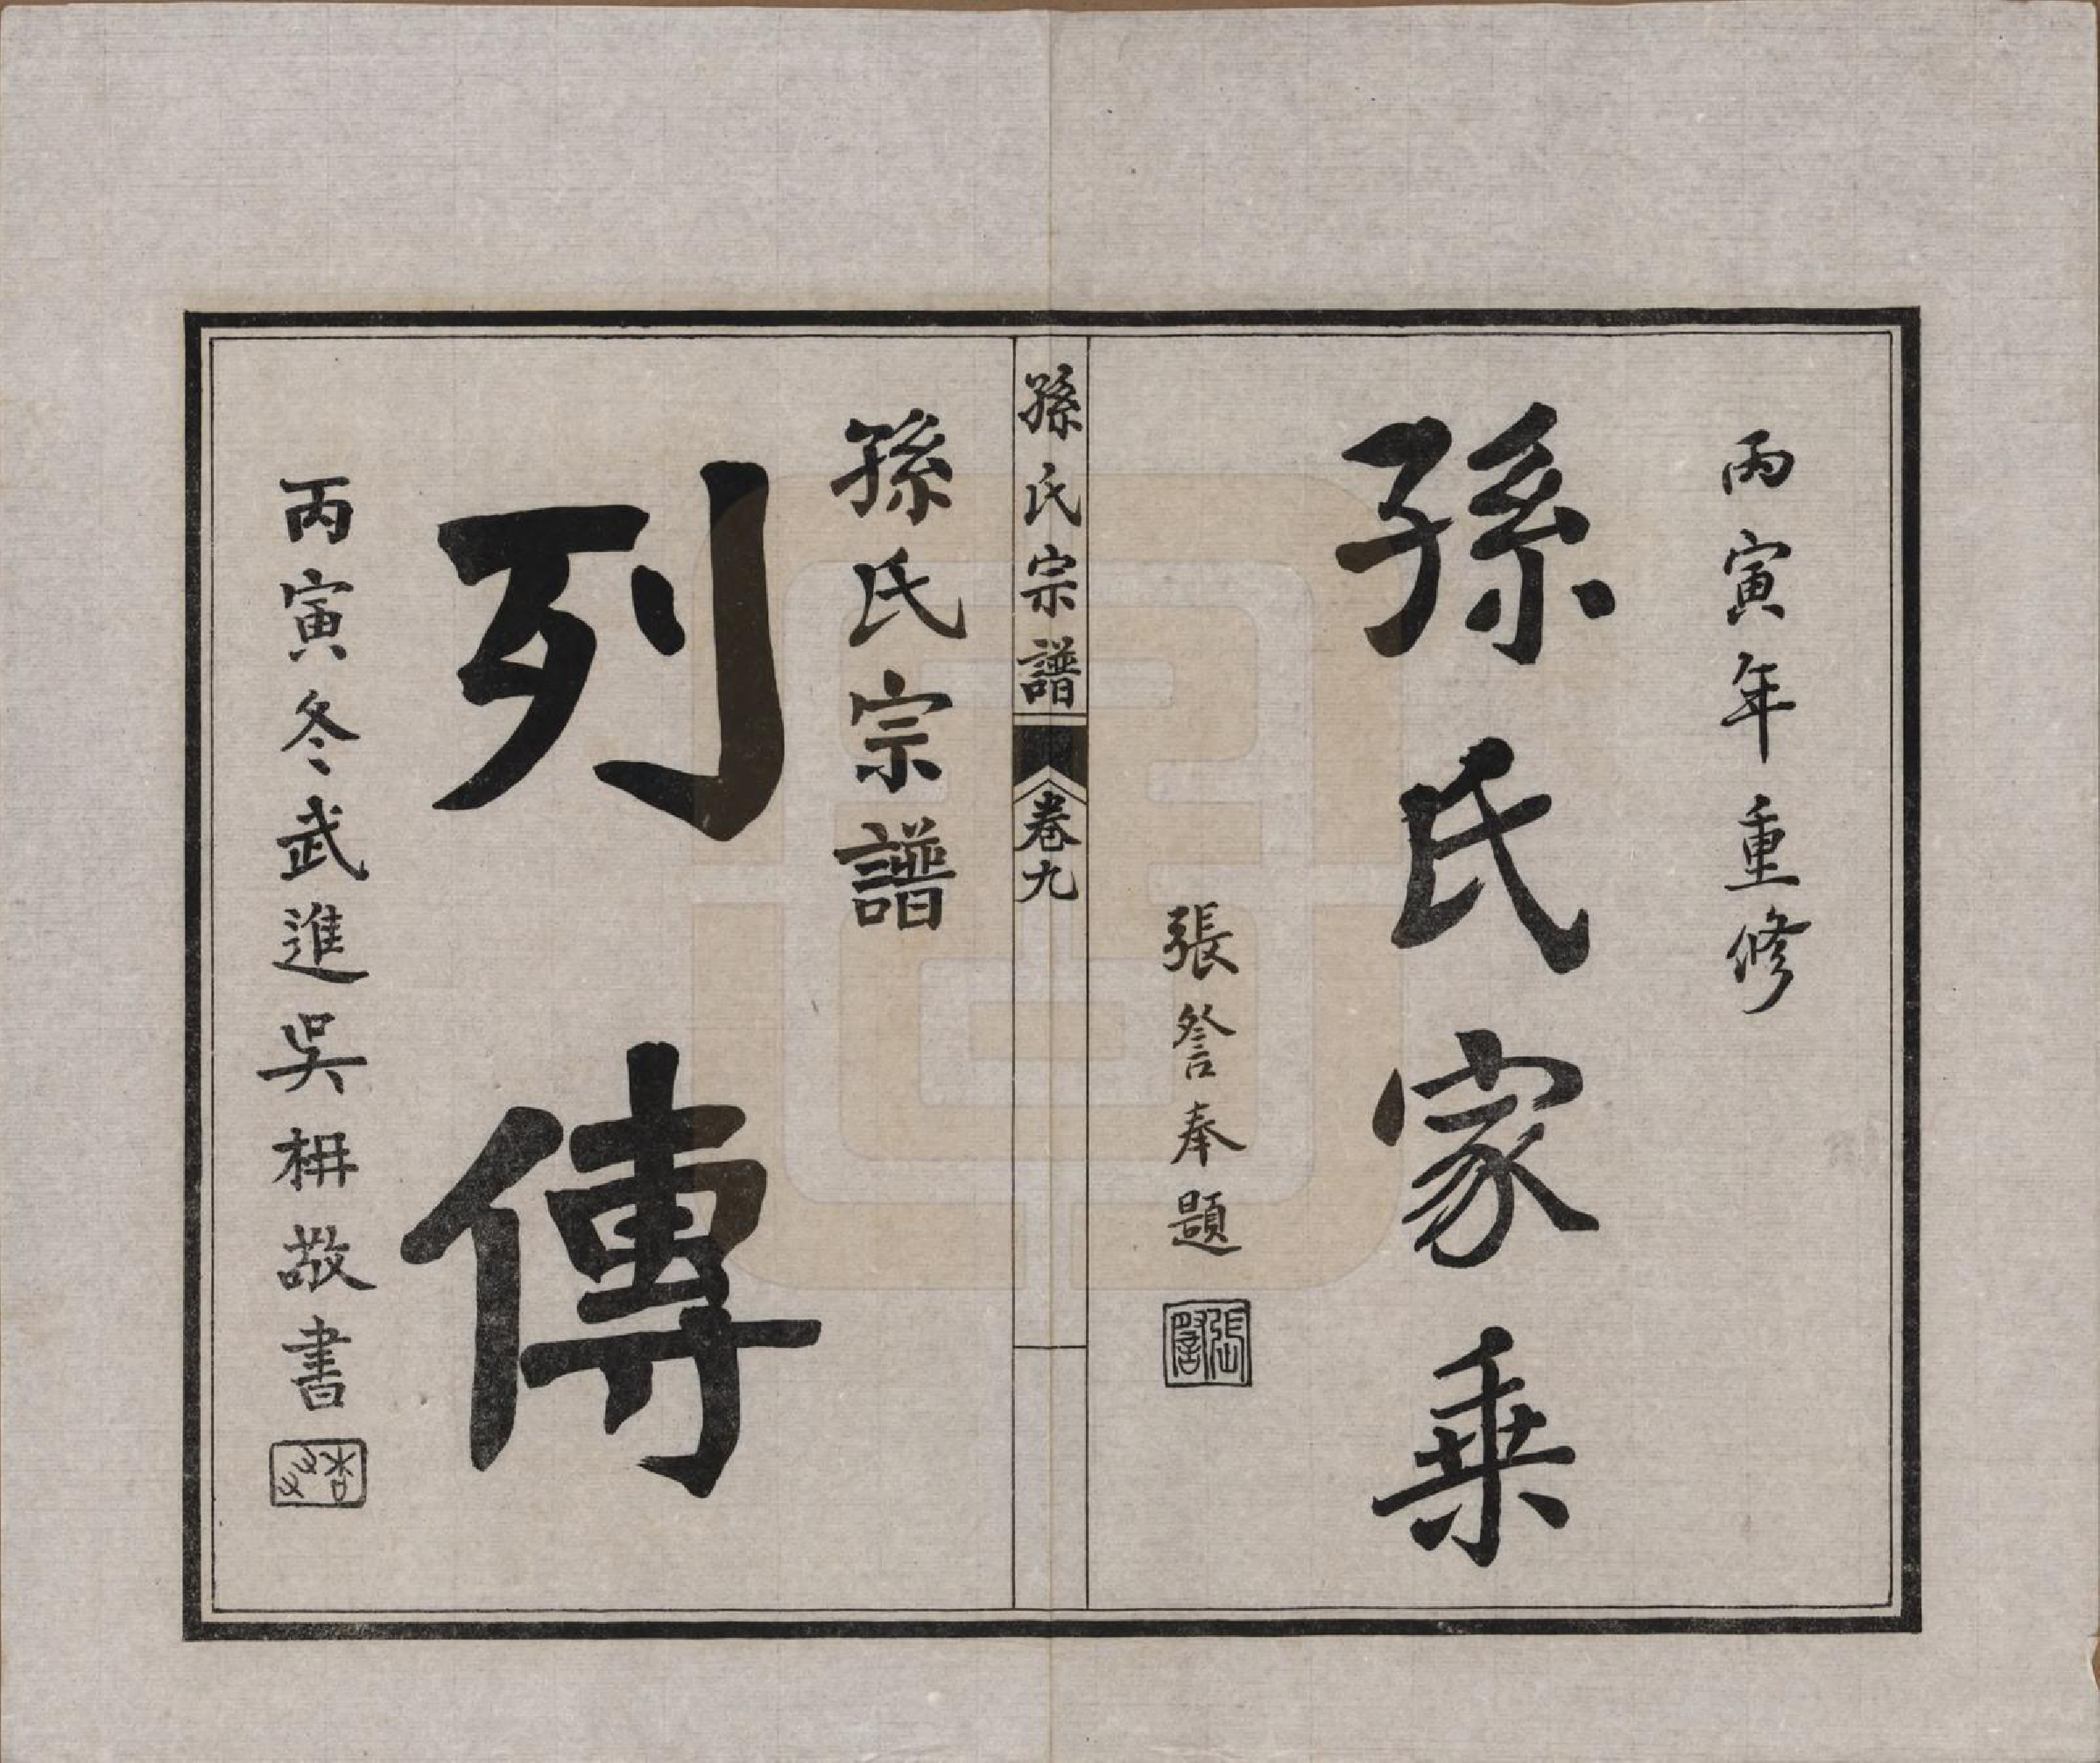 丙寅年重修
孫氏家乘
張詧奉題
孫氏宗譜 卷九
孫氏宗譜
列傳
丙寅冬武進吳枬敬書